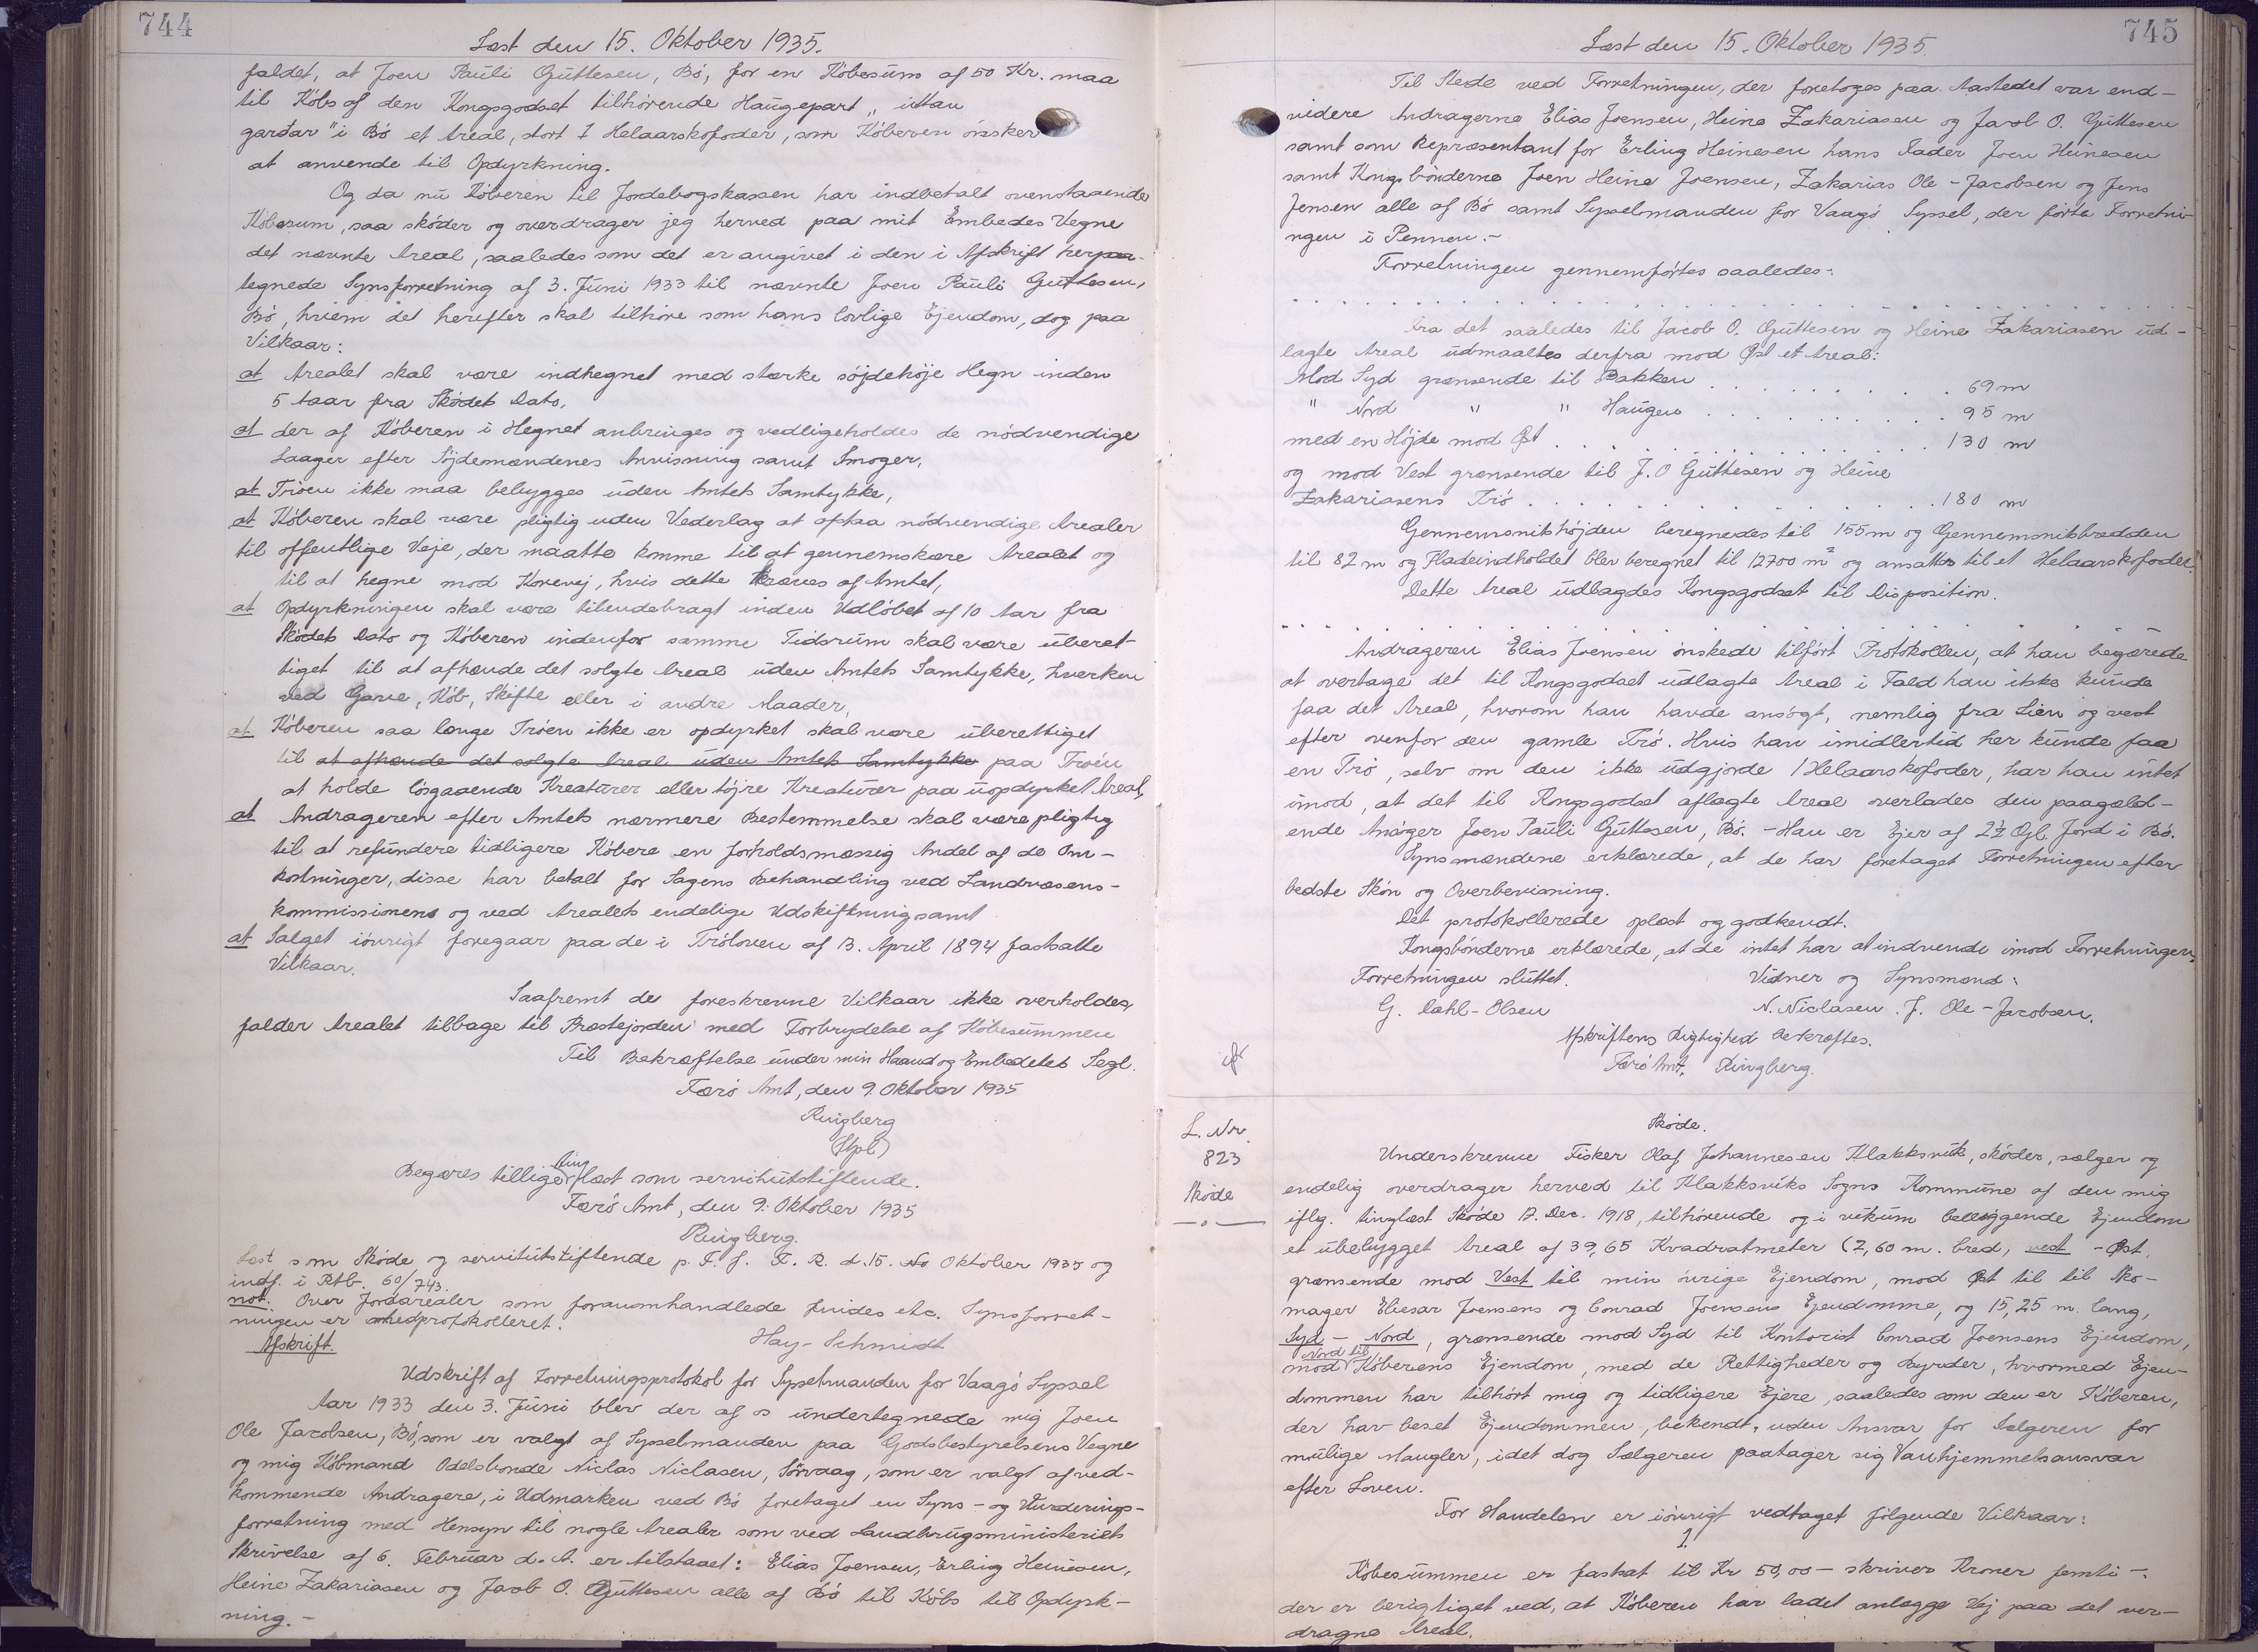 744
Læst den 15. Oktober 1935.
faldet, at Joen Pauli Guttesen, Bó, for en Købesum af 50 Kr. maa
til Købs af den Kongsgodset tilhørende Haugepart „uttan
garðar" i Bó et Areal, stort 1 Helaarskofoder, som Køberen ønsker
at anvende til Opdyrkning.
Og da nu Køberen til Jordebogskassen har indbetalt ovenstaaende
Købesum, saa skóder og overdrager jeg herved paa mit Embedes Vegne
det nævnte Areal, saaledes som det er angivet i den i Afskrift herpaa-
tegnede Synsforretning af 3. Juni 1933 til nævnte Joen Pauli Guttesen,
Bó, hvem det herefter skal tilhøre som hans lovlige Ejendom, dog paa
Vilkaar:
at Arealet skal være indhegnet med stærke sójdehóje Hegn inden
5 Aar fra Skódets Dato,
at der af Kóberen i Hegnet anbringes og vedligeholdes de nódvendige
Laager efter Sójdemændenes Anvisning samt Smoger,
at Tróen ikke maa bebygges uden Amtets Samtykke,
at Kóberen skal være pligtig uden Vederlag at afstaa nódvendige Arealer
til offentlige Veje, der maatte komme til at gennemskære Arealet og
til at hegne mod Kórevej, hvis dette kræves af Amtet,
at Opdyrkningen skal være tilendebragt inden Udlóbet af 10 Aar fra
Skódets Dato og Kóberen indenfor samme Tidsrum skal være uberet-
tiget til at afhænde det solgte Areal uden Amtets Samtykke, hverken
ved Gave, Kób, Skifte eller i andre Maader,
at Kóberen saa længe Tróen ikke er opdyrket skal være uberettiget
til at afhænde det solgte Areal uden Amtets Samtykke paa Tróen
at holde lósgaaende Kreaturer eller tójre Kreaturer paa uopdyrket Areal,
at Andrageren efter Amtets nærmere Bestemmelse skal være pligtig
til at refundere tidligere Kóbere en forholdsmæssig Andel af de Om-
kostninger, disse har betalt for Sagens Behandling ved Landvæsens-
kommissionens og ved Arealets endelige Udskiftning samt
at Salget ióvrigt foregaar paa de i Tróloven af 13. April 1894 fastsatte
Vilkaar.
Saafremt de foreskrevne Vilkaar ikke overholdes,
falder Arealet tilbage til Præstejorden med Forbrydelse af Kóbesummen
Til Bekræftelse under min Haand og Embedets Segl.
Færó Amt, den 9. Oktober 1935
Ringberg
(Stpl.)
Begæres tillige tinglæst som servitutstiftende.
Færó Amt, den 9. Oktober 1935
Ringberg.
Læst som Skóde og servitutstiftende p. F. J. F. R. d. 15. No Oktober 1935 og
indf. i Rtb. 60/743.
not. Over Jordarealer som foranomhandlede findes etc. Synsforret-
ningen er medprotokolleret.
Hay-Schmidt
Afskrift.
Udskrift af Forretningsprotokol for Sysselmanden for Vaagó Syssel
Aar 1933 den 3. Juni blev der af os undertegnede mig Joen
Ole Jacobsen, Bó, som er valgt af Sysselmanden paa Godsbestyrelsens Vegne
og mig Kóbmand Odelsbonde Niclas Niclasen, Sórvaag, som er valgt af ved-
kommende Andragere, i Udmarken ved Bó foretaget en Syns- og Vurderings-
forretning med Hensyn til nogle Arealer som ved Landbrugsministeriets
Skrivelse af 6. Februar d. A. er tilstaaet: Elias Joensen, Erling Heinesen,
Heine Zakariasen og Jacob O. Guttesen alle af Bó til Kóbs til Opdyrk-
ning.-
745
Læst den 15. Oktober 1935.
Til Stede ved Forretningen, der foretoges paa Aastedet var end-
videre Andragerne Elias Joensen, Heine Zakariasen og Jacob O. Guttesen
samt som Repræsentant for Erling Heinesen hans Fader Joen Heinesen
samt Kongsbónderne Joen Heine Joensen, Zakarias Ole-Jacobsen og Jens
Jensen alle af Bó samt Sysselmanden for Vaagó Syssel, der fórte Forretni-
ngen i Pennen.-
Forretningen gennemfórtes saaledes:
Fra det saaledes til Jacob O. Guttesen og Heine Zakariasen ud-
lagte Areal udmaaltes derfra mod Øst et Areal:
Mod Syd grænsende til Bakken . . . . . . 69 m
" Nord " " Haugen . . . . . . 95 m
med en Højde mod Øst . . . . . . 130 m
og mod Vest grænsende til J. O Guttesen og Heine
Zakariasens Tró . . . . . . 180 m
Gennemsnitshójden beregnedes til 155 m og Gennemsnitsbredden
til 82 m og Fladeindholdet blev beregnet til 12700 m² og ansattes til et Helaarskofoder.
Dette Areal udlagdes Kongsgodset til Disposition.
Andrageren Elias Joensen ónskede tilfórt Protokollen, at han begærede
at overtage det til Kongsgodset udlagte Areal i Fald han ikke kunde
faa det Areal, hvorom han havde ansógt, nemlig fra Lien og vest
efter ovenfor den gamle Tró. Hvis han imidlertid her kunde faa
en Tró, selv om den ikke udgjorde 1 Helaarskofoder, har han intet
imod, at det til Kongsgodset aflagte Areal overlades den paagæld-
ende Ansóger Joen Pauli Guttesen, Bó. - Han er Ejer af 2½ Gyl. Jord i Bó.
Synsmændene erklærede, at de har foretaget Forretningen efter
bedste Skón og Overbevisning.
Det protokollerede oplæst og godkendt.
Kongsbónderne erklærede, at de intet har at indvende imod Forretningen.
Forretningen sluttet. Vidner og Synsmænd:
G. Dahl-Olsen N. Niclasen. J. Ole-Jacobsen.
Afskriftens Rigtighed bekræftes.
Færó Amt, Ringberg.
L. Nr.
823
Skóde
Skóde.
Underskrevne Fisker Olaf Johannesen Klakksvik, skóder, sælger og
endelig overdrager herved til Klakksviks Sogns Kommune af den mig
iflg. tinglæst Skóde 12. Dec. 1918, tilhórende og i vikum beliggende Ejendom
et ubebygget Areal af 39,65 Kvadratmeter (2,60 m. bred, vest - Øst,
grænsende mod Vest til min óvrige Ejendom, mod Øst til til Sko-
mager Eliesar Joensens og Conrad Joensens Ejendomme, og 15,25 m. lang,
Syd - Nord, grænsende mod Syd til Kontorist Conrad Joensens Ejendom,
mod Nord til Kóberens Ejendom, med de Rettigheder og Byrder, hvormed Ejen-
dommen har tilhórt mig og tidligere Ejere, saaledes som den er Kóberen,
der har beset Ejendommen, bekendt, uden Ansvar for Sælgeren for
mulige Mangler, idet dog Sælgeren paatager sig Vanhjemmelsansvar
efter Loven.
For Handelen er ióvrigt vedtaget fólgende Vilkaar:
1.
Kóbesummen er fastsat til Kr 50,00 - skriver Kroner femti -.
der er berigtiget ved, at Kóberen har ladet anlægge Vej paa det over-
dragne Areal.